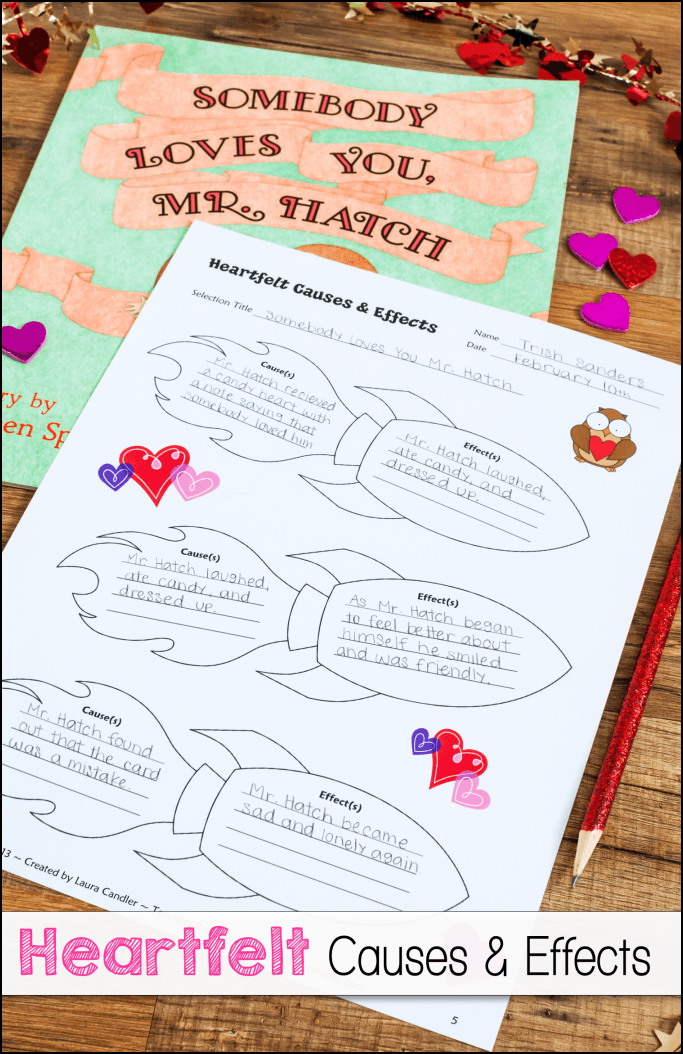 SOMEBODY
LOVES YOU,
MR. HATCH
Heartfelt Causes & Effects
Selection Title Somebody Loves You Mr. Hatch
Name Trish Sanders
Date February 10th
Cause(s)
Mr. Hatch recieved
a candy heart with
a note saying that
somebody loved him
Effect(s)
Mr. Hatch laughed,
ate candy, and
dressed up.
ry by
en Sp
Cause(s)
Mr. Hatch laughed,
ate candy, and
dressed up.
Effect(s)
As Mr. Hatch began
to feel better about
himself he smiled
and was friendly.
Cause(s)
Mr. Hatch found
out that the card
was a mistake.
Effect(s)
Mr. Hatch became
sad and lonely again
13 ~ Created by Laura Candler ~
Heartfelt Causes & Effects
5